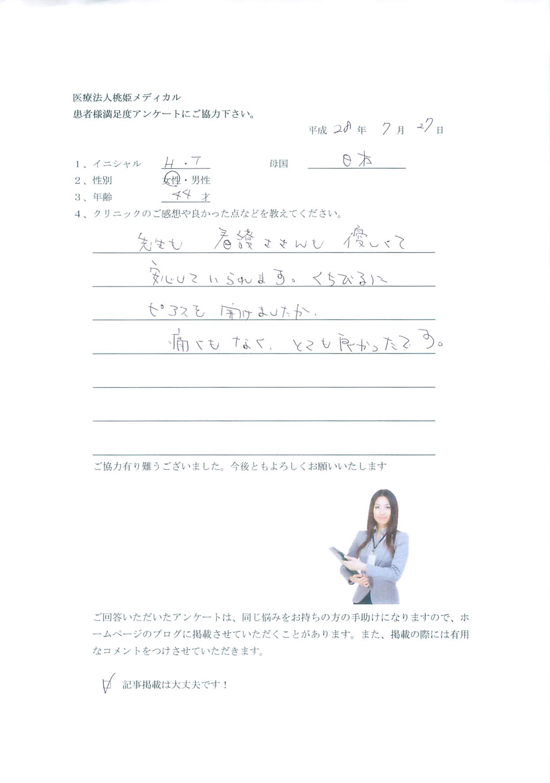 医療法人桃姫メディカル
患者様満足度アンケートにご協力下さい。
平成 28 年 7 月 27 日
1、イニシャル H・T 母国 日本
2、性別 女性・男性
3、年齢 44 才
4、クリニックのご感想や良かった点などを教えてください。
先生も 看護さんも 優しくて
安心していられます。くちびるに
ピアスを 開けましたが、
痛くもなく、とても良かったです。
ご協力有り難うございました。今後ともよろしくお願いいたします
ご回答いただいたアンケートは、同じ悩みをお持ちの方の手助けになりますので、ホ
ームページのブログに掲載させていただくことがあります。また、掲載の際には有用
なコメントをつけさせていただきます。
記事掲載は大丈夫です！